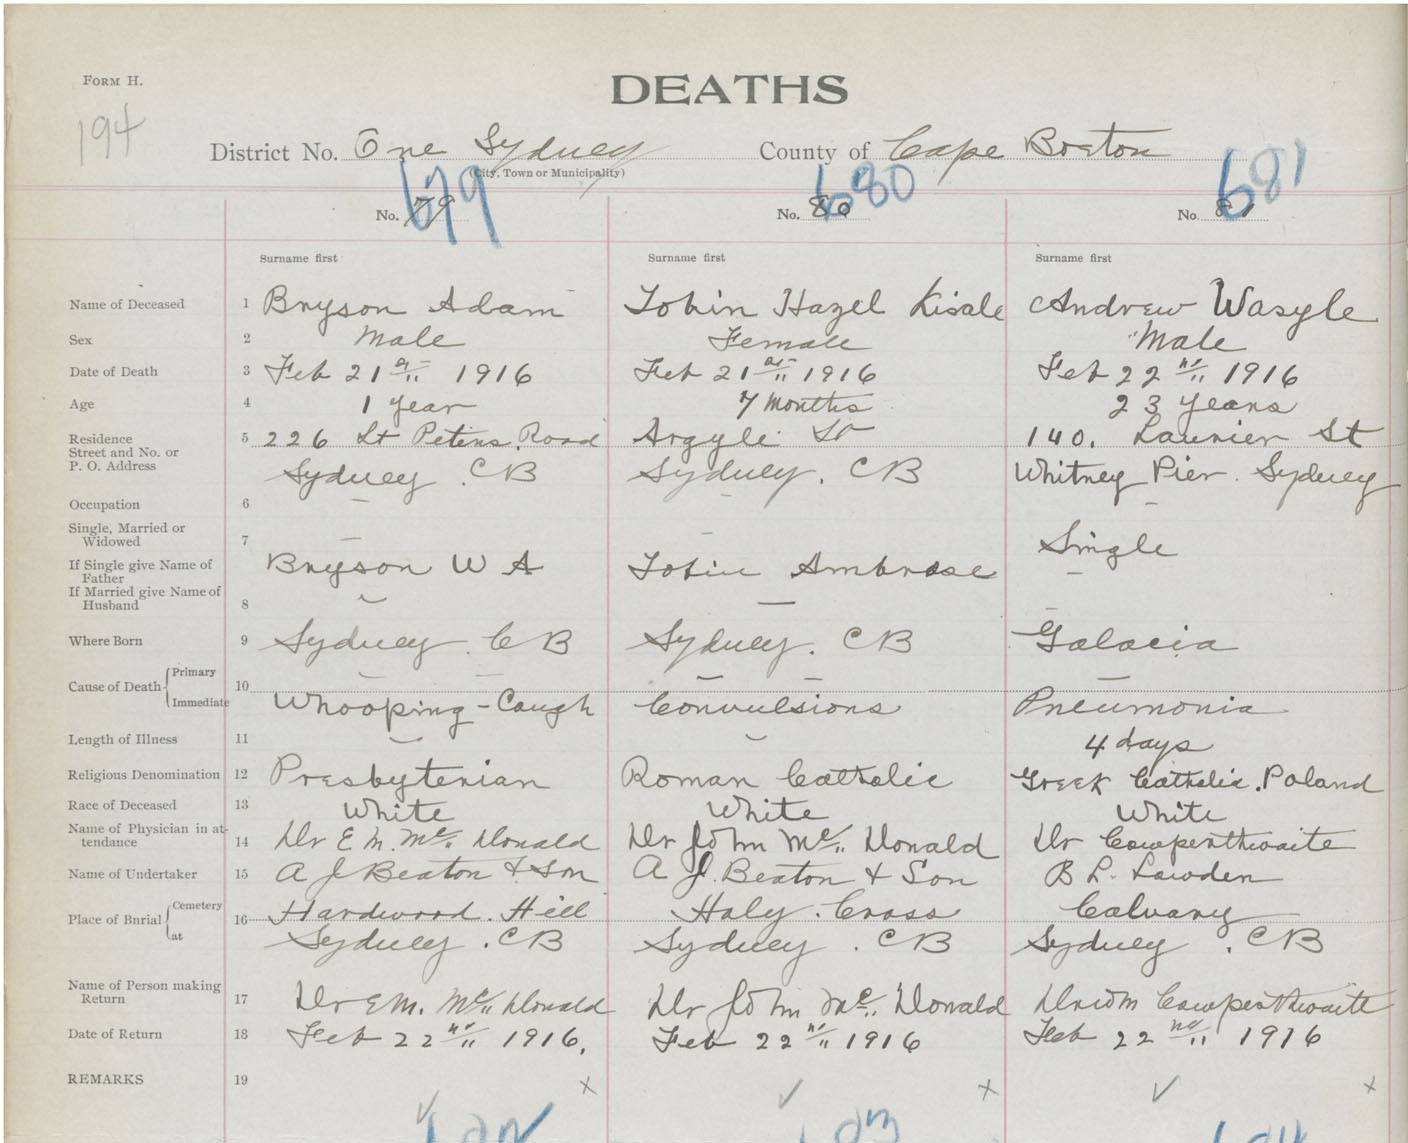 FORM H.
DEATHS
194
District No. One Sydney County of Cape Breton
(City, Town or Municipality)
679 680 681
No. 79 No. 80 No. 81
Surname first Surname first Surname first
Name of Deceased 1 Bryson Adam Tobin Hazel Andrew Wasyle
Sex 2 Male Female Male
Date of Death 3 Feb 21st 1916 Feb 21st 1916 Feb 22nd 1916
Age 4 1 year 7 months 23 years
Residence 5 226 St Peters Road Argyle St 140. Laurier St
Street and No. or
P. O. Address Sydney. CB Sydney. CB Whitney Pier. Sydney
Occupation 6 – – –
Single, Married or
Widowed 7 – – Single
If Single give Name of
Father Bryson W A Tobin Ambrose –
If Married give Name of
Husband 8 – – –
Where Born 9 Sydney. CB Sydney. CB Galacia
Cause of Death Primary 10 – – – – –
Immediate Whooping-Cough Convulsions Pneumonia
Length of Illness 11 – – 4 days
Religious Denomination 12 Presbyterian Roman Catholic Greek Catholic. Poland
Race of Deceased 13 White White White
Name of Physician in at-
tendance 14 Dr E M. Mc Donald Dr John Mc Donald Dr Cowperthwaite
Name of Undertaker 15 A J Beaton & Son A J. Beaton & Son B L. Lawden
Place of Burial Cemetery 16 Hardwood. Hill Holy. Cross Calvary
at Sydney. CB Sydney. CB Sydney. CB
Name of Person making
Return 17 Dr E M. Mc Donald Dr John Mc Donald Dr Cowperthwaite
Date of Return 18 Feb 22nd 1916. Feb 22nd 1916 Feb 22nd 1916
REMARKS 19 x x x